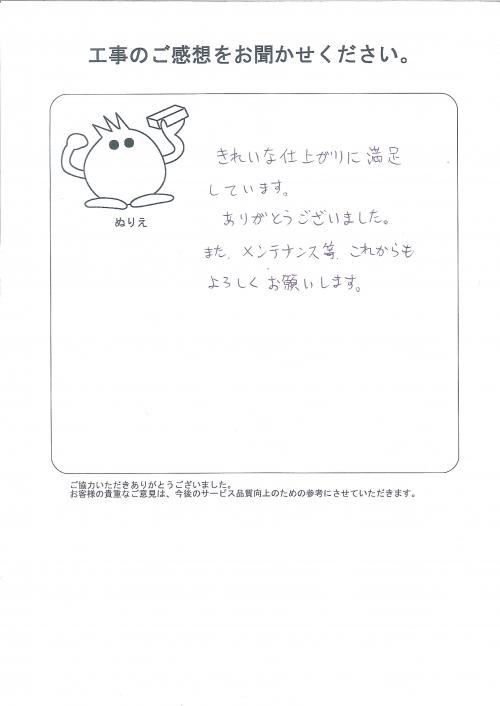 工事のご感想をお聞かせください。
きれいな仕上がりに満足
しています。
ありがとうございました。
また、メンテナンス等、これからも
よろしくお願いします。
ぬりえ
ご協力いただきありがとうございました。
お客様の貴重なご意見は、今後のサービス品質向上のための参考にさせていただきます。